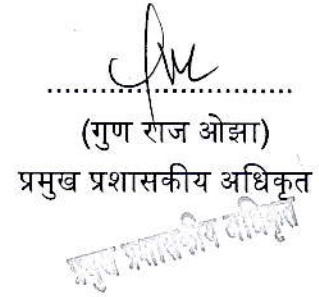 (गुण राज ओझा)
प्रमुख प्रशासकीय अधिकृत
प्रमुख प्रशासकीय अधिकृत